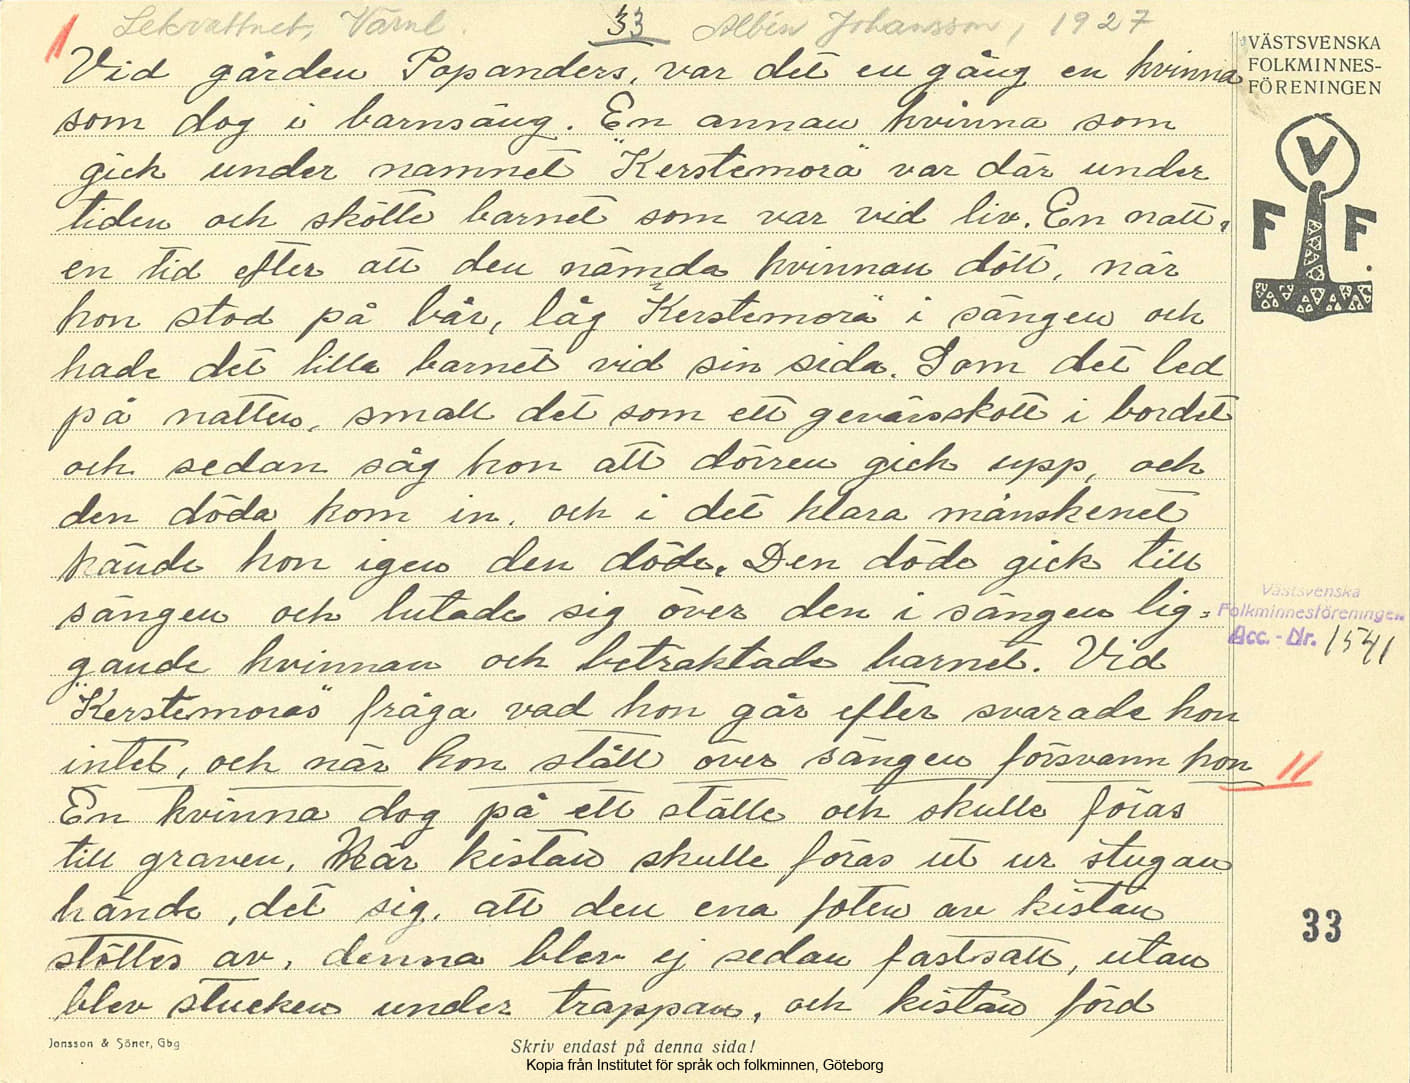 Lekvattnet, Värml. 33 Albin Johansson, 1927
VÄSTSVENSKA
FOLKMINNES-
FÖRENINGEN
V
F F.
Vid gården Popanders, var det en gång en kvinna
som dog i barnsäng. En annan kvinna som
gick under namnet "Kerstemora" var där under
tiden och skötte barnet som var vid liv. En natt,
en tid efter att den nämda kvinnan dött, när
hon stod på bår, låg "Kerstemora" i sängen och
hade det lilla barnet vid sin sida. Som det led
på natten, small det som ett gevärsskott i bordet
och sedan såg hon att dörren gick upp, och
den döda kom in, och i det klara månskenet
kände hon igen den döde. Den döde gick till
sängen och lutade sig över den i sängen lig=
gande kvinnan och betraktade barnet. Vid
"Kerstemoras" fråga vad hon går efter svarade hon
intet, och när hon stått över sängen försvann hon
En kvinna dog på ett ställe och skulle föras
till graven. När kistan skulle föras ut ur stugan
hände, det sig, att den ena foten av kistan
stöttes av, denna blev ej sedan fastsatt, utan
blev stucken under trappan, och kistan förd
Västsvenska
Folkminnesföreningen
Acc.-Nr. 1541
33
Jonsson & Söner, Gbg
Skriv endast på denna sida!
Kopia från Institutet för språk och folkminnen, Göteborg